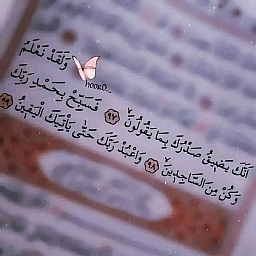 وَلَقَدْ نَعْلَمُ
أَنَّكَ يَضِيقُ صَدْرُكَ بِمَا يَقُولُونَ ٩٧ فَسَبِّحْ بِحَمْدِ رَبِّكَ
وَكُنْ مِنَ السَّاجِدِينَ ٩٨ وَاعْبُدْ رَبَّكَ حَتَّى يَأْتِيَكَ الْيَقِينُ ٩٩